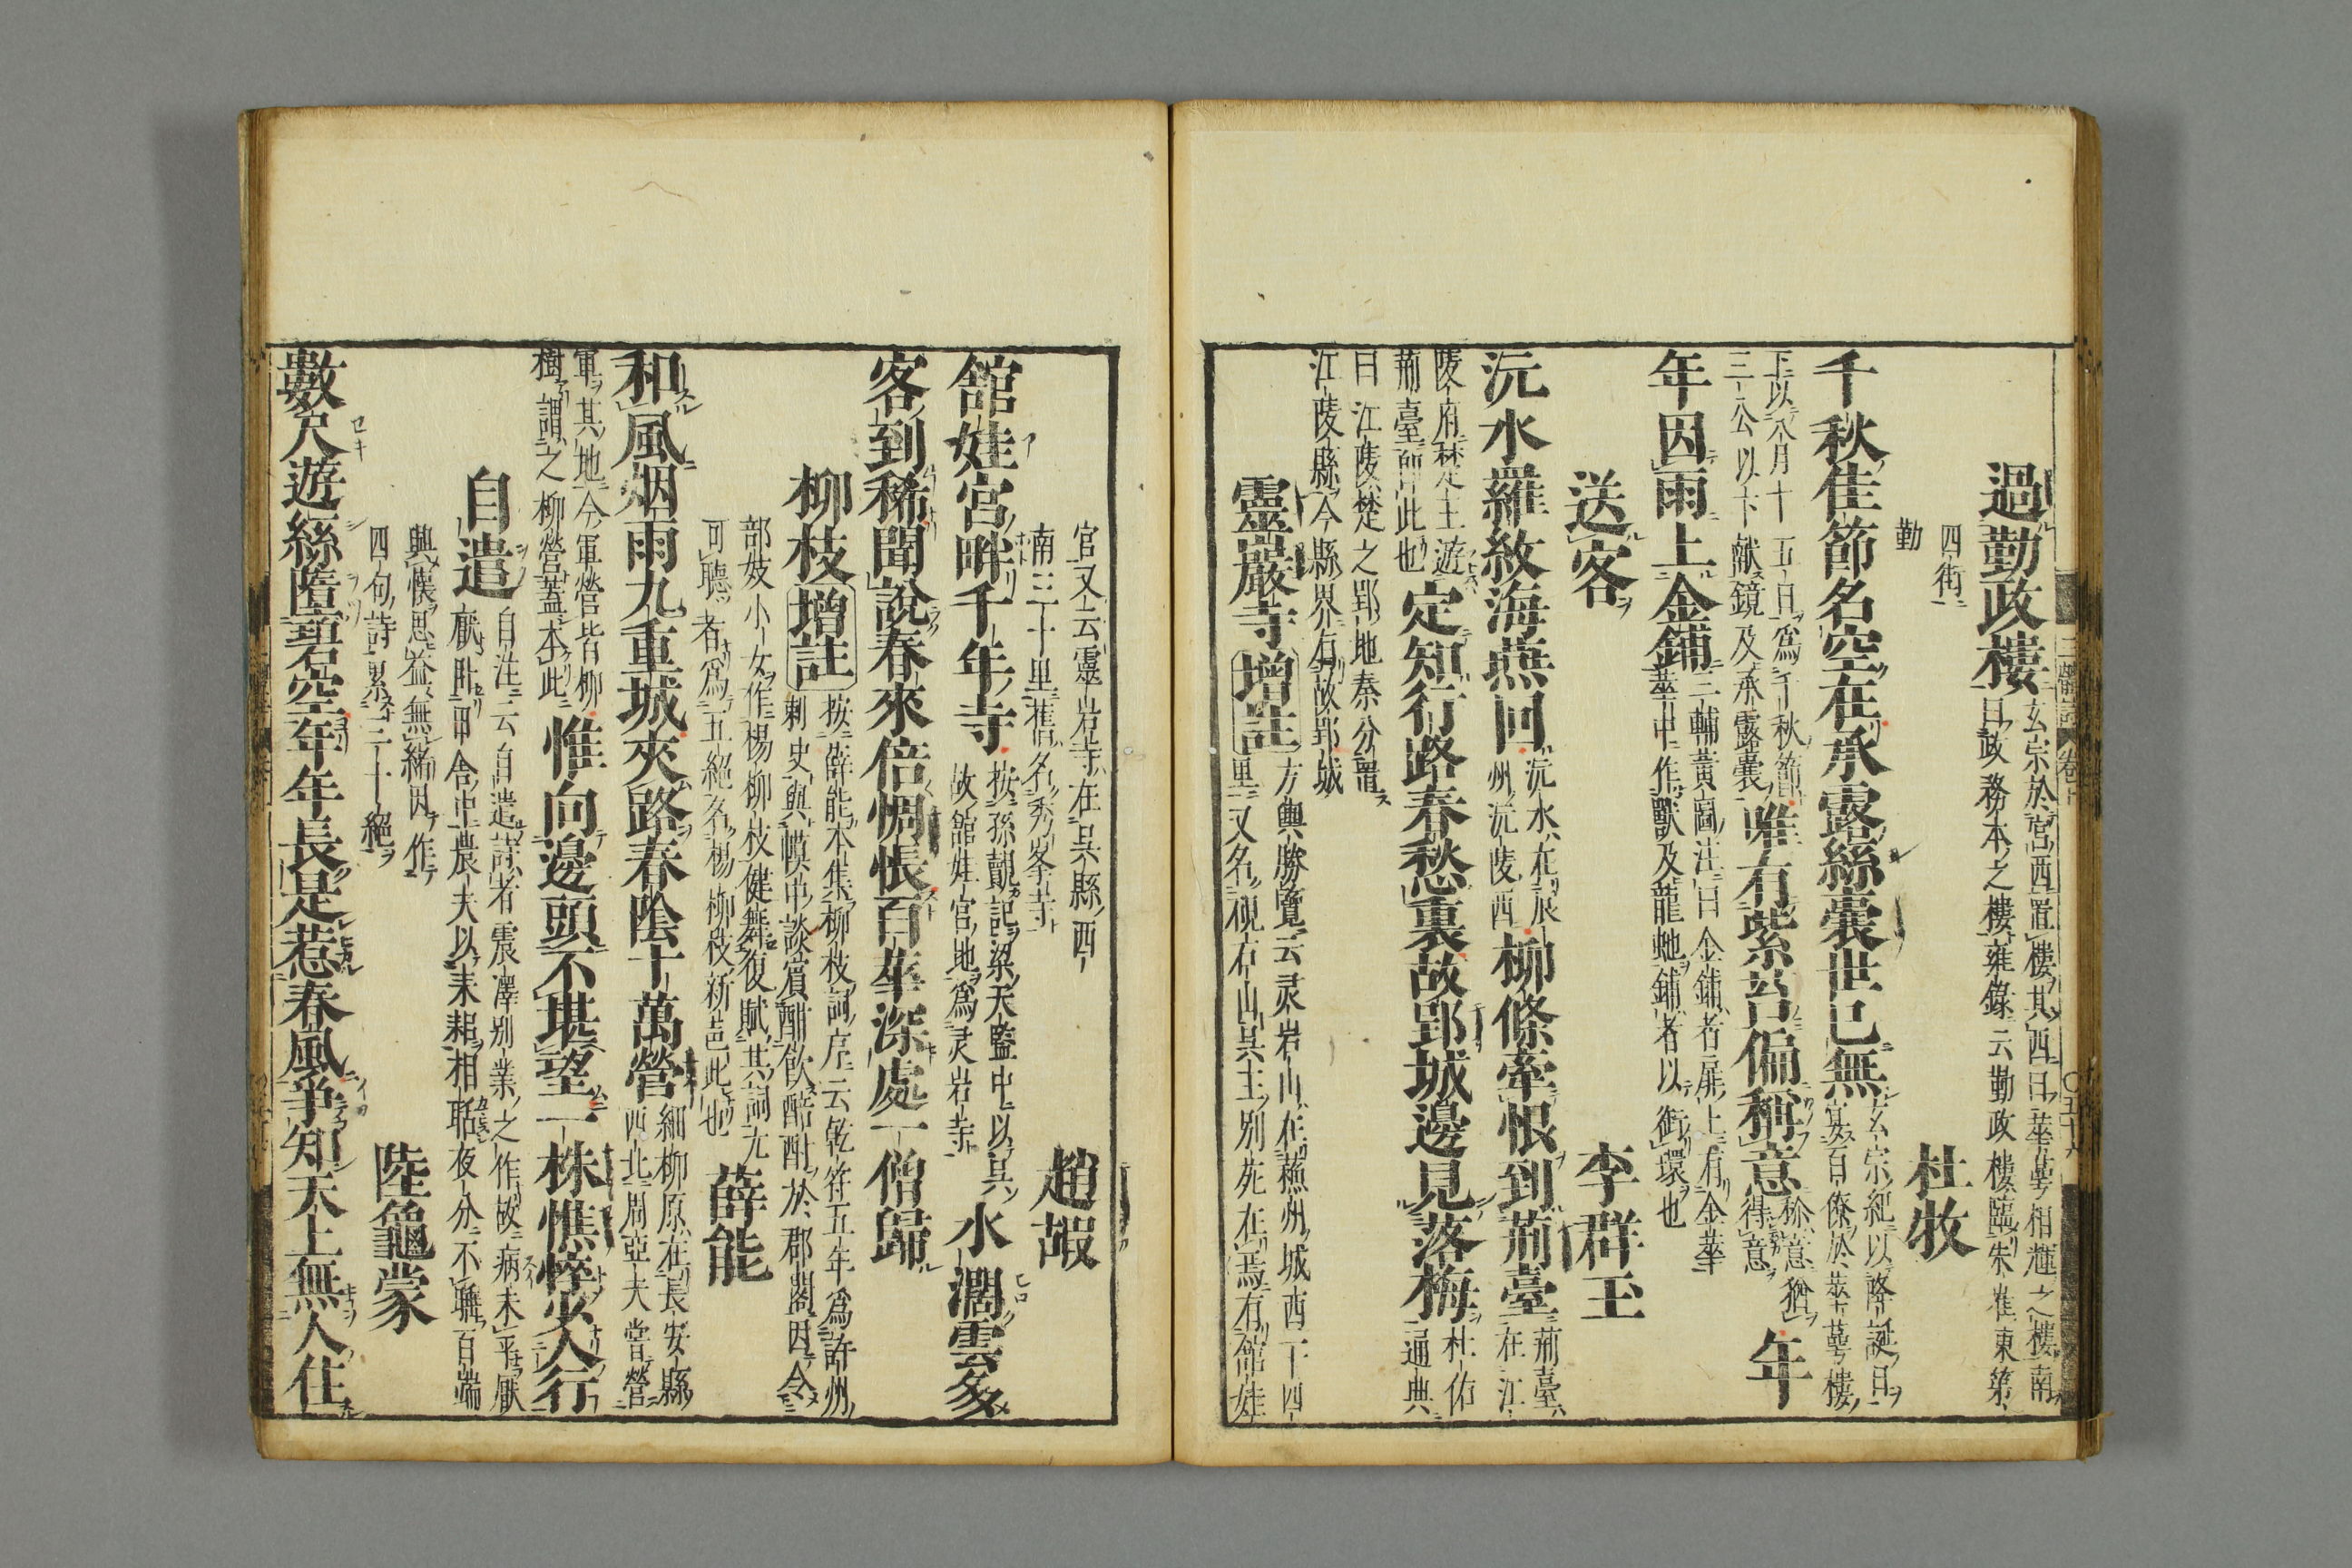 過勤政樓 玄宗於宮西置樓其西曰華萼相輝之樓南
曰政務本之樓雍錄云勤政樓臨朱雀東第
四街
勤
杜牧
千秋佳節名空在承露絲囊世已無 玄宗紀以降誕日
宴百僚於華萼樓
下以八月十五日爲千秋節
三公以下献鏡及承露囊 唯有紫苔偏稱意 稱意猶
得意 年
年因雨上金鋪 三輔黃圖注曰金鋪者扉上有金華
華中作獸及龍虵鋪者以銜環也
送客
李群玉
沅水羅紋海燕回 沅水在辰
州沅陵西 柳條牽恨到荊臺 荊臺
在江
陵府楚王遊
荊臺前即此也 定知行路春愁裏故郢城邊見落梅 杜佑
通典
曰江陵楚之郢地秦分置
江陵縣今縣界有故郢城
靈巖寺 增註 方輿勝覽云灵岩山在蘇州城西二十四
里又名硯石山吳王別苑在焉有舘娃
宮又云靈岩寺在吳縣西
南三十里舊名秀峯寺
趙嘏
舘娃宮畔千年寺 按孫覿記梁天監中以吳
故舘娃宮地爲灵岩寺 水濶雲多
客到稀聞說春來倍惆悵百華深處一僧歸
柳枝 增註 按薛能本集柳枝詞序云乾符五年爲許州
刺史與幙中談賓酣飲酩酊於郡閣因令
部妓小女作楊柳枝健舞復賦其詞尤
可聽者爲五絕名楊柳枝新色此也
薛能
和風烟雨九重城夾路春陰十萬營 細柳原在長安縣
西北周亞夫嘗營
軍其地今軍營皆柳
樹謂之柳營蓋本此 惟向邊頭不堪望一株憔悴少人行
自遣 自注云自遣詩者震澤別業之作故病未平厭
厭卧田舍中農夫以耒耜相聒夜分不寐百端
興懷思益無緒因作
四句詩累三十絕
陸龜蒙
數尺遊絲墮碧空年年長是惹春風爭知天上無人住